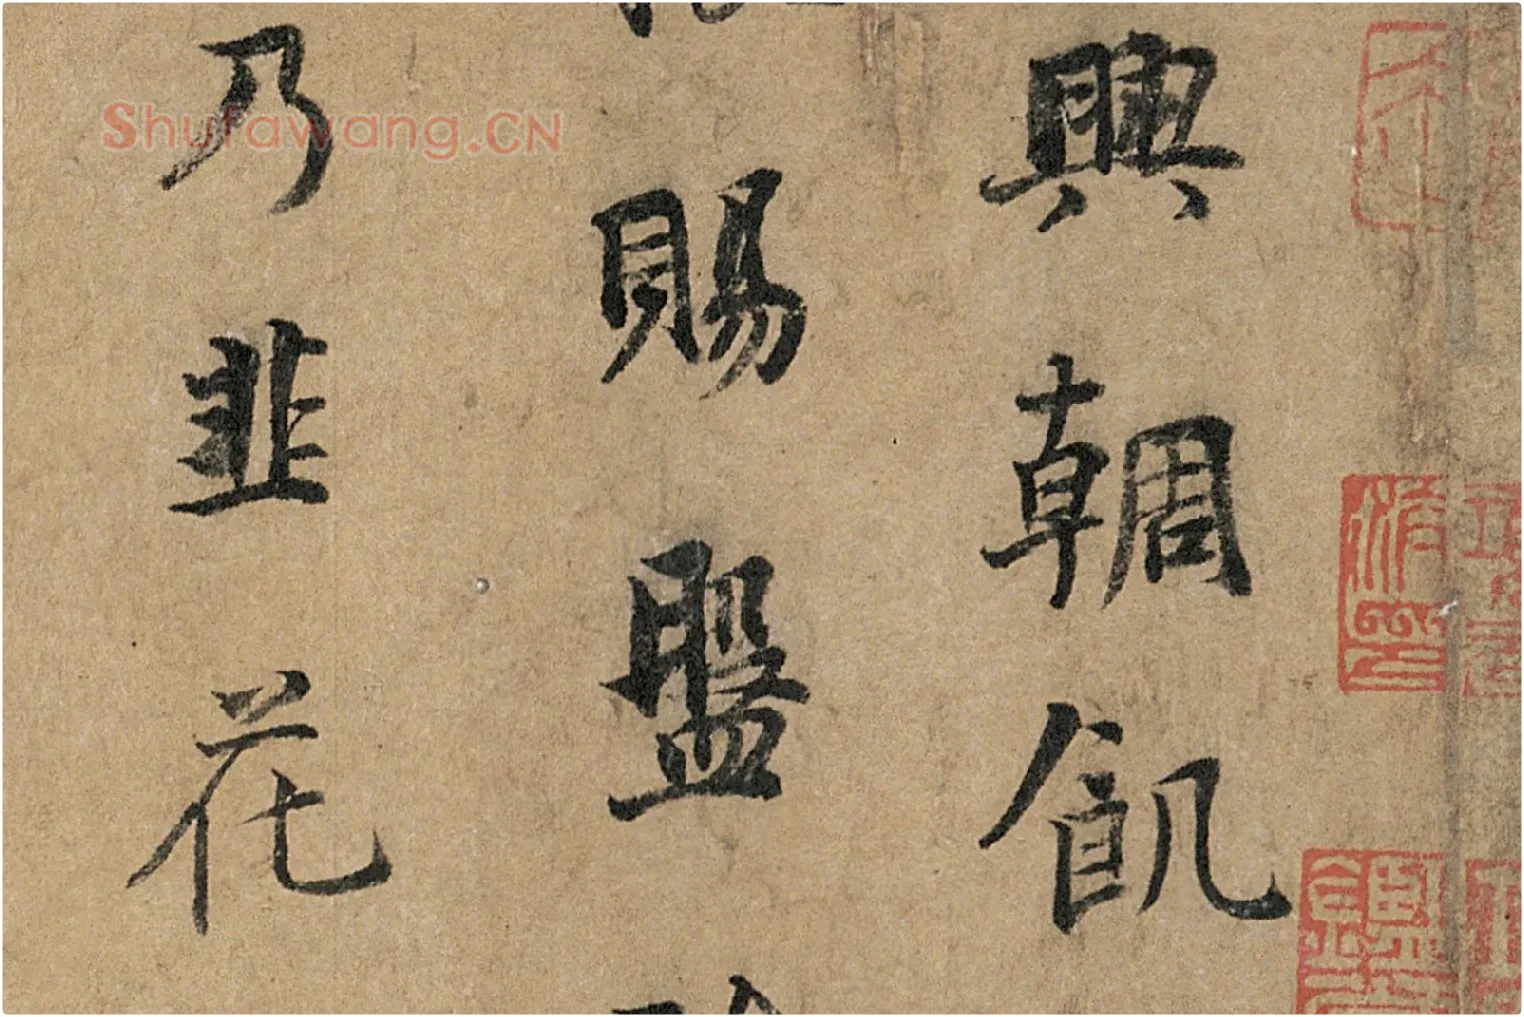 興輖飢
賜盤
乃韭花
Shufawang.CN